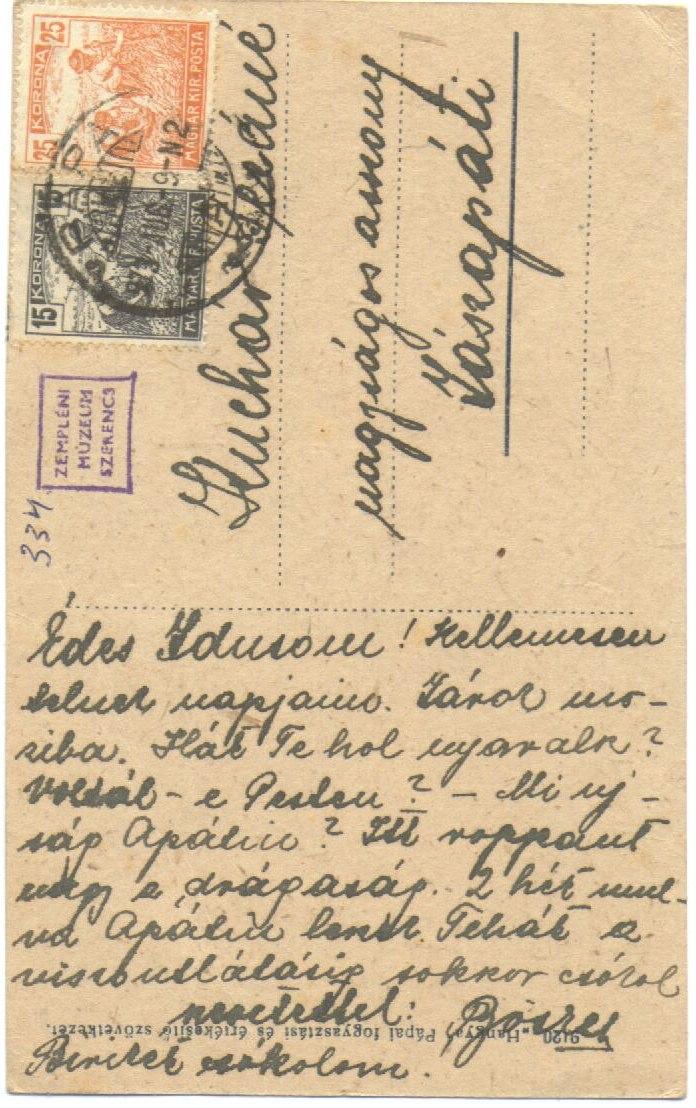 25 KORONA 25
MAGYAR KIR. POSTA
15 KORONA 15
MAGYAR KIR. POSTA
PÁPA
923 AUG
9-N2
ZEMPLÉNI
MÚZEUM
SZERENCS
334
Kuchar
nagyságos asszony
Jászapáti
Édes Idusom! Kellemesen
telnek napjaim. Járok mo-
ziba. Hát Te hol nyaralsz?
Voltál-e Pesten? - Mi uj-
ság Apátin? Itt roppant
nagy a drágaság. 2 hét mul-
va Apátin leszek Tehát a
viszontlátásig sokkor csókol
szeretettel:
csókolom.
9120 „Hangya" Pápai fogyasztási és értékesitő szövetkezet.